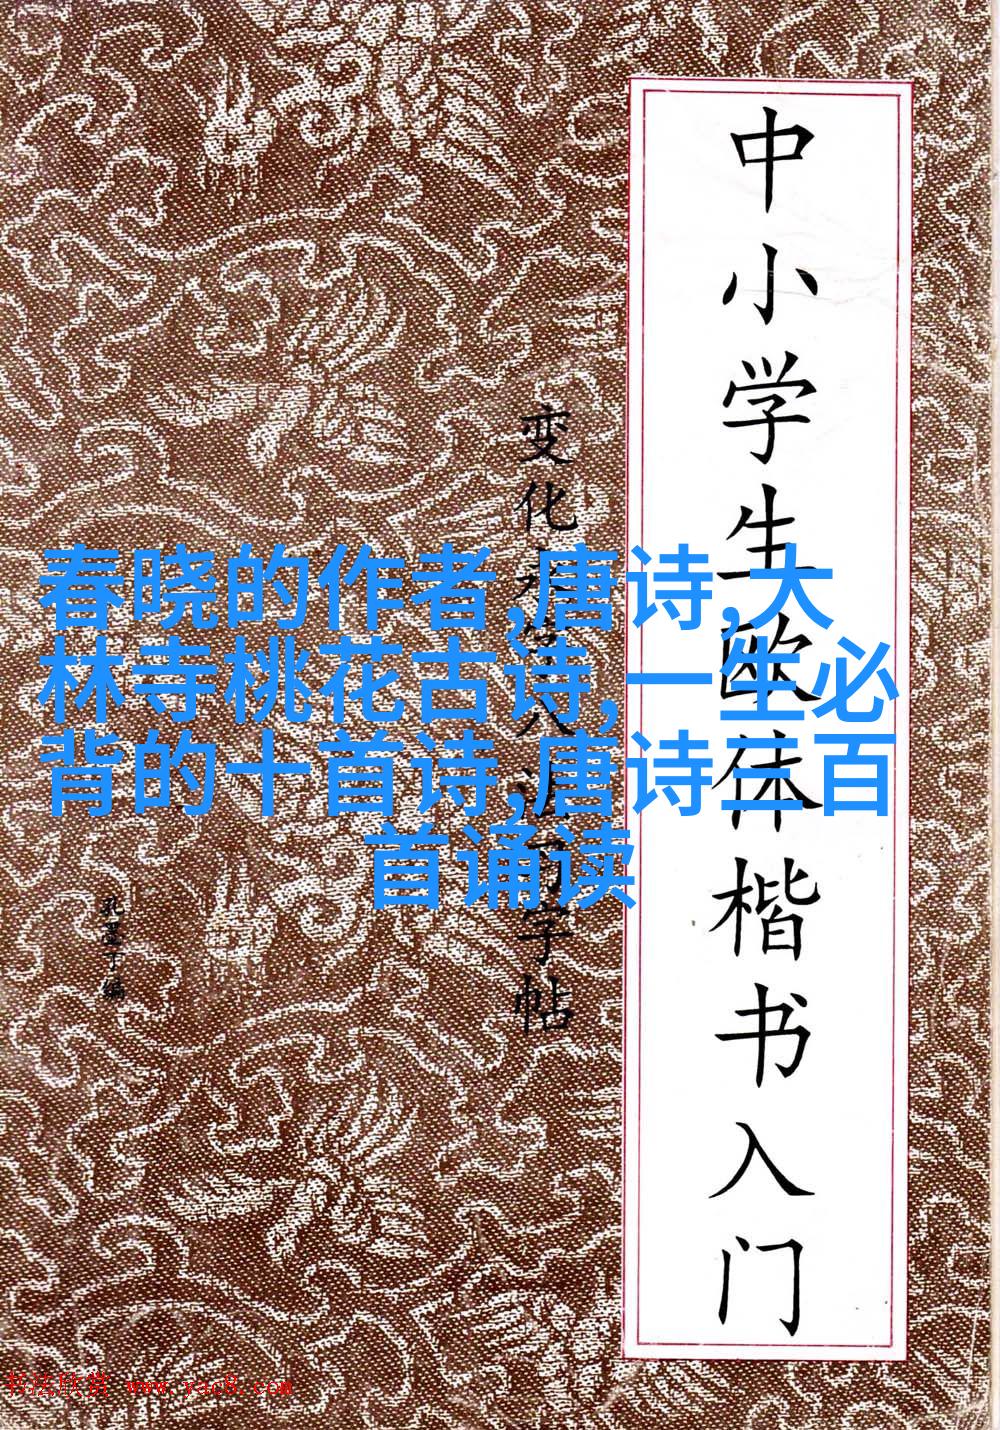 中小学生欧体楷书入门
变化
字帖
孔墨丁编
春晓的作者,唐诗,大
林寺桃花古诗,一生必
背的十首诗,唐诗三百
首诵读
书法欣赏 www.yac8.com